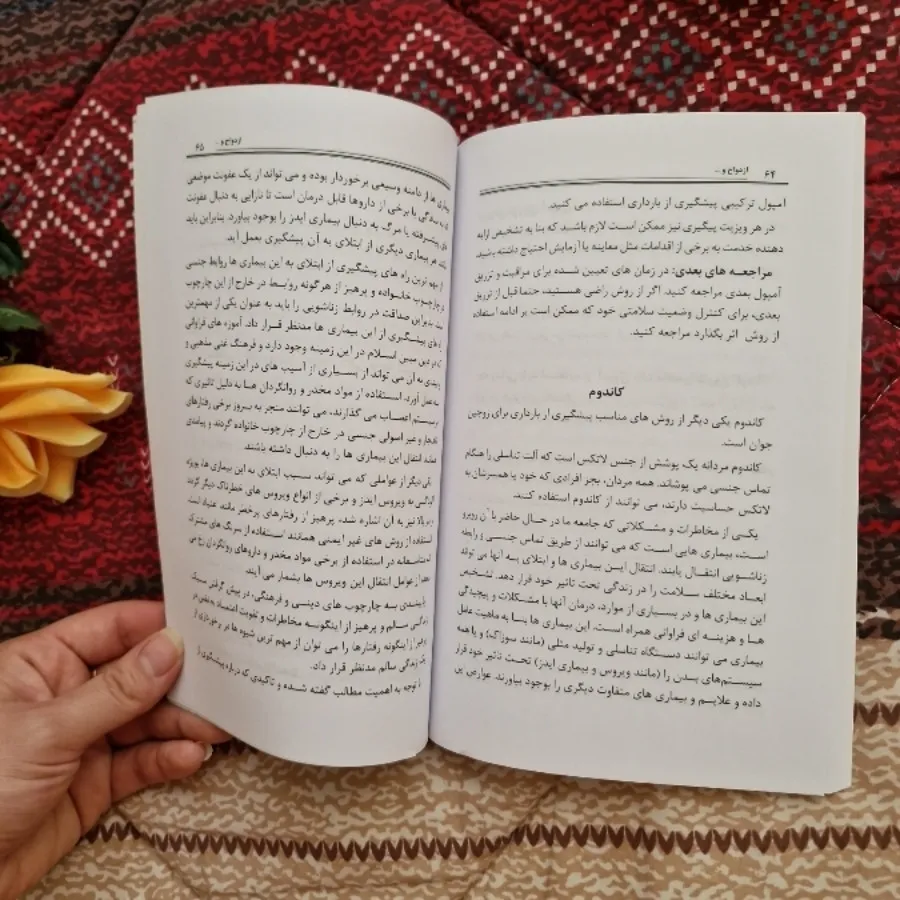 ۶۴ ازدواج و ...
امپول ترکیبی پیشگیری از بارداری استفاده می کنید.
در هر ویزیت پیگیری نیز ممکن است لازم باشید که بنا به تشخیص ارایه
دهنده خدمت به برخی از اقدامات مثل معاینه یا آزمایش احتیاج داشته باشید.
مراجعه های بعدی: در زمان های تعیین شده برای مراقبت و تزریق
آمپول بعدی مراجعه کنید. اگر از روش راضی هستید، حتما قبل از تزریق
بعدی، برای کنترل وضعیت سلامتی خود که ممکن است بر ادامه استفاده
از روش اثر بگذارد مراجعه کنید.
کاندوم
کاندوم یکی دیگر از روش های مناسب پیشگیری از بارداری برای زوجین
جوان است.
کاندوم مردانه یک پوشش از جنس لاتکس است که آلت تناسلی را هنگام
تماس جنسی می پوشاند. همه مردان، بجز افرادی که خود یا همسرشان به
لاتکس حساسیت دارند، می توانند از کاندوم استفاده کنند.
یکی از مخاطرات و مشکلاتی که جامعه ما در حال حاضر با آن روبرو
است، بیماری هایی است که می توانند از طریق تماس جنسی و رابطه
زناشویی انتقال یابند. انتقال این بیماری ها و ابتلای به آنها می تواند
ابعاد مختلف سلامت را در زندگی تحت تاثیر خود قرار دهد. تشخیص
این بیماری ها و در بسیاری از موارد، درمان آنها با مشکلات و پیچیدگی
ها و هزینه ای فراوانی همراه است. این بیماری ها بسا به ماهیت عامل
بیماری می توانند دستگاه تناسلی و تولید مثلی (مانند سوزاک) و یا همه
سیستم‌های بدن را (مانند ویروس و بیماری ایدز) تحت تاثیر خود قرار
داده و علایم و بیماری های متفاوت دیگری را بوجود بیاورند. عوارض این
۶۵
بیماری ها از دامنه وسیعی برخوردار بوده و می تواند از یک عفونت موضعی
به سادگی با برخی از داروها قابل درمان است تا نازایی به دنبال عفونت
های پیشرفته یا مرگ به دنبال بیماری ایدز را بوجود بیاورد. بنابراین باید
مانند هر بیماری دیگری از ابتلای به آن پیشگیری بعمل آید.
از مهم ترین راه های پیشگیری از ابتلای به این بیماری ها روابط جنسی
در چارچوب خانواده و پرهیز از هرگونه روابط در خارج از این چارچوب
است. بنابراین صداقت در روابط زناشویی را باید به عنوان یکی از مهمترین
راه های پیشگیری از این بیماری ها مدنظر قرار داد. آموزه های فراوانی
که در دین مبین اسلام در این زمینه وجود دارد و فرهنگ غنی مذهبی و
پایبندی به آن می تواند از بسیاری از آسیب های در این زمینه پیشگیری
به عمل آورد. استفاده از مواد مخدر و روانگردان ها به دلیل تاثیری که
بر سیستم اعصاب می گذارند، می توانند منجر به بروز برخی رفتارهای
و غیر اصولی جنسی در خارج از چارچوب خانواده گردند و پیامدی
مانند انتقال این بیماری ها را به دنبال داشته باشند.
یکی دیگر از عواملی که می تواند سبب ابتلای به این بیماری ها، بویژه
آلودگی به ویروس ایدز و برخی از انواع ویروس های خطرناک دیگر گردد
که در بالا نیز به آن اشاره شد، پرهیز از رفتارهای پرخطر مانند اعتیاد است.
استفاده از روش های غیر ایمنی همانند استفاده از سرنگ های مشترک
در استفاده از برخی مواد مخدر و داروهای روانگردان رخ می
دهد از عوامل انتقال این ویروس ها بشمار می آیند.
پایبندی به چارچوب های دینی و فرهنگی، در پیش گرفتن سبک
زندگی سالم و پرهیز از اینگونه مخاطرات و تقویت اعتماد بنفس در
پرهیز از اینگونه رفتارها را می توان از مهم ترین شیوه ها در برخورداری از
یک زندگی سالم مدنظر قرار داد.
با توجه به اهمیت مطالب گفته شده و تاکیدی که درباره پیشگیری از